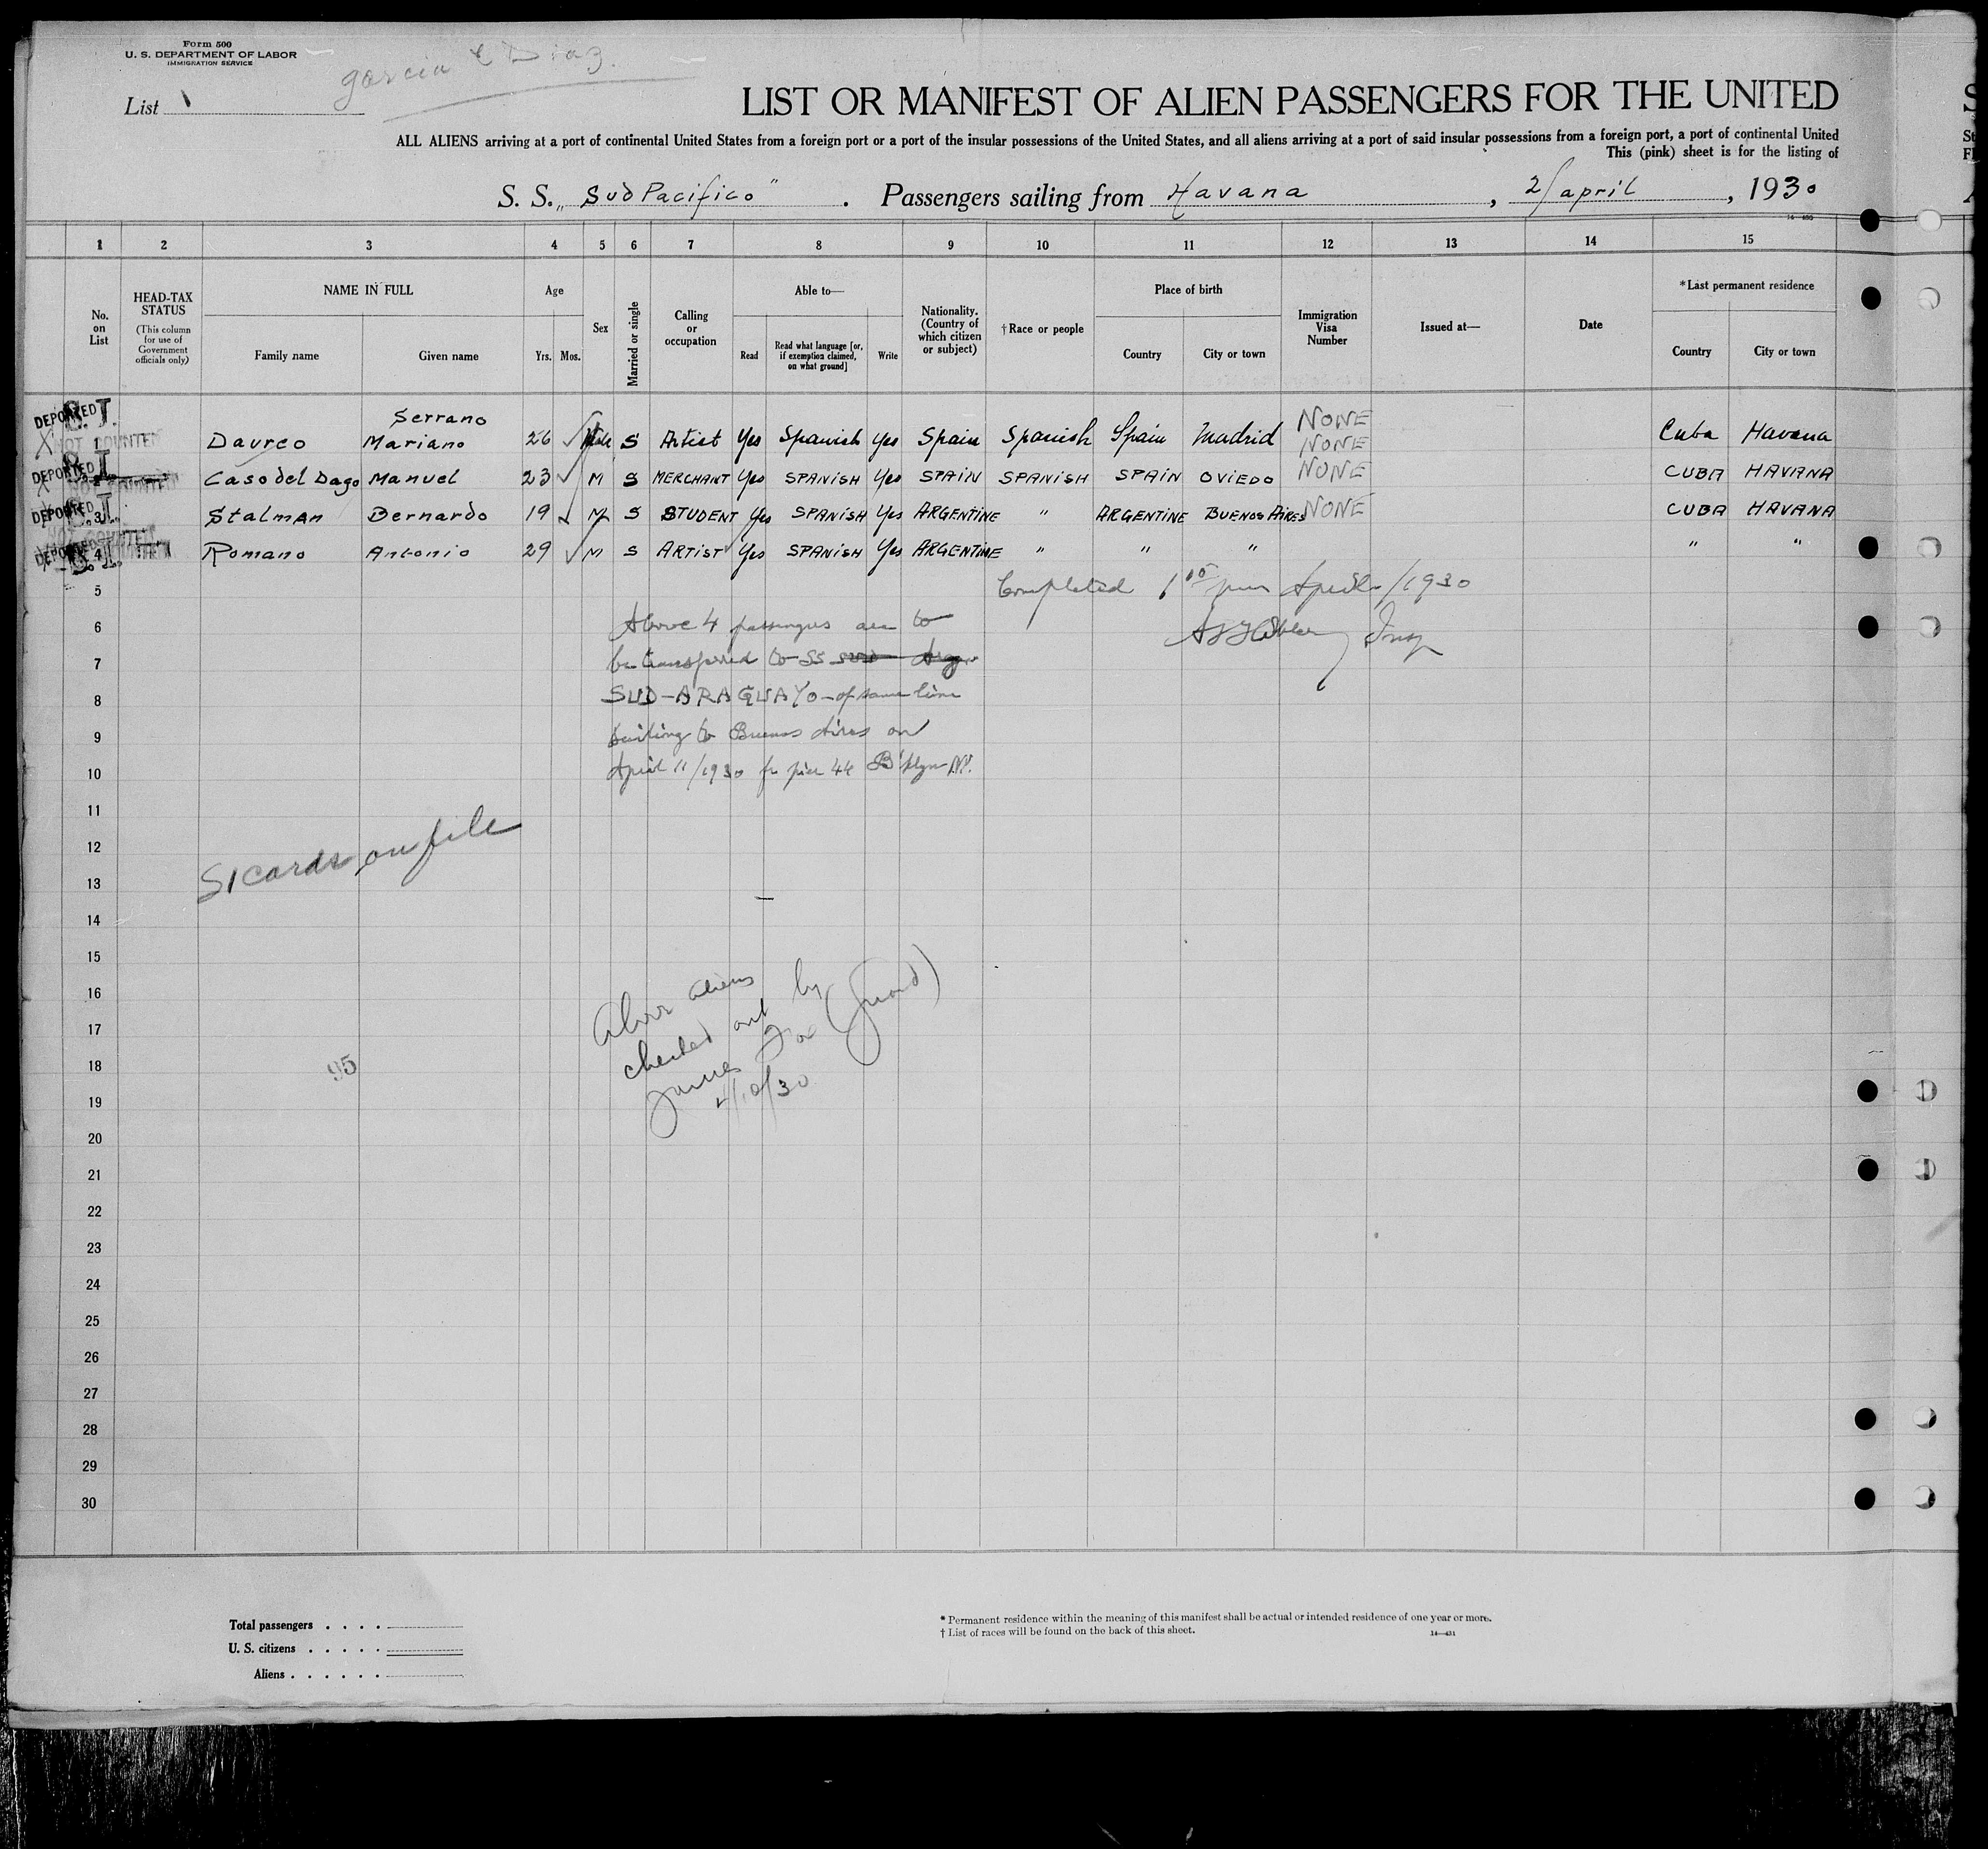 Form 500
U. S. DEPARTMENT OF LABOR
IMMIGRATION SERVICE
Garcia & Diaz.
List 1
LIST OR MANIFEST OF ALIEN PASSENGERS FOR THE UNITED
ALL ALIENS arriving at a port of continental United States from a foreign port or a port of the insular possessions of the United States, and all aliens arriving at a port of said insular possessions from a foreign port, a port of continental United
This (pink) sheet is for the listing of
S. S. "Sud Pacifico". Passengers sailing from Havana, 2/april, 1930
1 2 3 4 5 6 7 8 9 10 11 12 13 14 15
No. on List
HEAD-TAX STATUS
(This column for use of Government officials only)
NAME IN FULL
Family name Given name
Age
Yrs. Mos.
Sex
Married or single
Calling or occupation
Able to—
Read
Read what language [or, if exemption claimed, on what ground]
Write
Nationality. (Country of which citizen or subject)
†Race or people
Place of birth
Country City or town
Immigration Visa Number
Issued at—
Date
*Last permanent residence
Country City or town
DEPORTED S.I.
Serrano NONE
NOT COUNTED
1 Davreo Mariano 26 S Artist Yes Spanish Yes Spain Spanish Spain Madrid NONE Cuba Havana
DEPORTED S.I. Caso del Dago Manuel 23 M S MERCHANT Yes SPANISH Yes SPAIN SPANISH SPAIN OVIEDO NONE CUBA HAVANA
DEPORTED S.I. 3 Stalman Bernardo 19 M S STUDENT Yes SPANISH Yes ARGENTINE " ARGENTINE BUENOS AIRES NONE CUBA HAVANA
NOT COUNTED
DEPORTED S.I. 4 Romano Antonio 29 M S ARTIST Yes SPANISH Yes ARGENTINE " " " " "
5 Completed 1 05 pm April /1930
6 Above 4 passengers are to Insp
7 be transferred to SS
8 SUD-ARAGUAYO - of same line
9 sailing to Buenos Aires on
10 April 11/1930 fr pier 44 B'klyn N.Y.
11
12
SI cards on file
13
14
15
16
17
18
19
20
21
22
23
24
25
26
27
28
29
30
Above aliens
checked out by
James (Guard)
4/10/30
95
Total passengers . . . .
U. S. citizens . . . . .
Aliens . . . . . .
* Permanent residence within the meaning of this manifest shall be actual or intended residence of one year or more.
† List of races will be found on the back of this sheet.
14—431